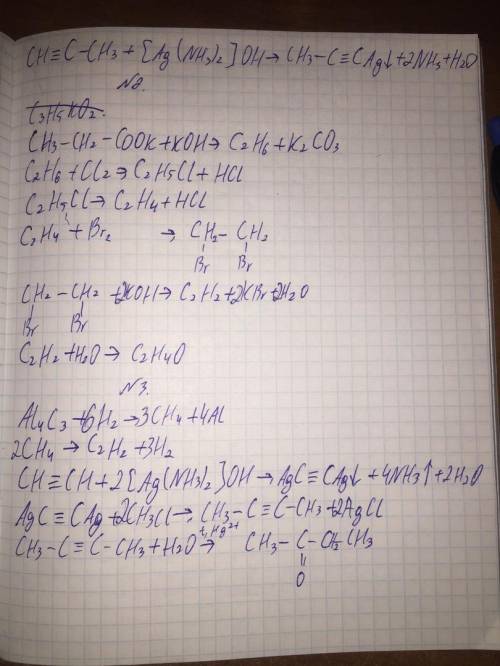 CH≡C-CH3 + [Ag(NH3)2]OH → CH3-C≡CAg↓ + 2NH3 + H2O
№2.
C3H5KO2.
CH3-CH2-COOK + KOH → C2H6 + K2CO3
C2H6 + Cl2 → C2H5Cl + HCl
C2H5Cl → C2H4 + HCl
C2H4 + Br2 → CH2 - CH2
Br Br
CH2 - CH2 + 2KOH → C2H2 + 2KBr + 2H2O
Br Br
C2H2 + H2O → C2H4O
№3.
Al4C3 + 6H2 → 3CH4 + 4Al
2CH4 → C2H2 + 3H2
CH≡CH + 2[Ag(NH3)2]OH → AgC≡CAg↓ + 4NH3↑ + 2H2O
AgC≡CAg + 2CH3Cl → CH3-C≡C-CH3 + 2AgCl
CH3-C≡C-CH3 + H2O t, Hg2+ → CH3-C-CH2-CH3
O